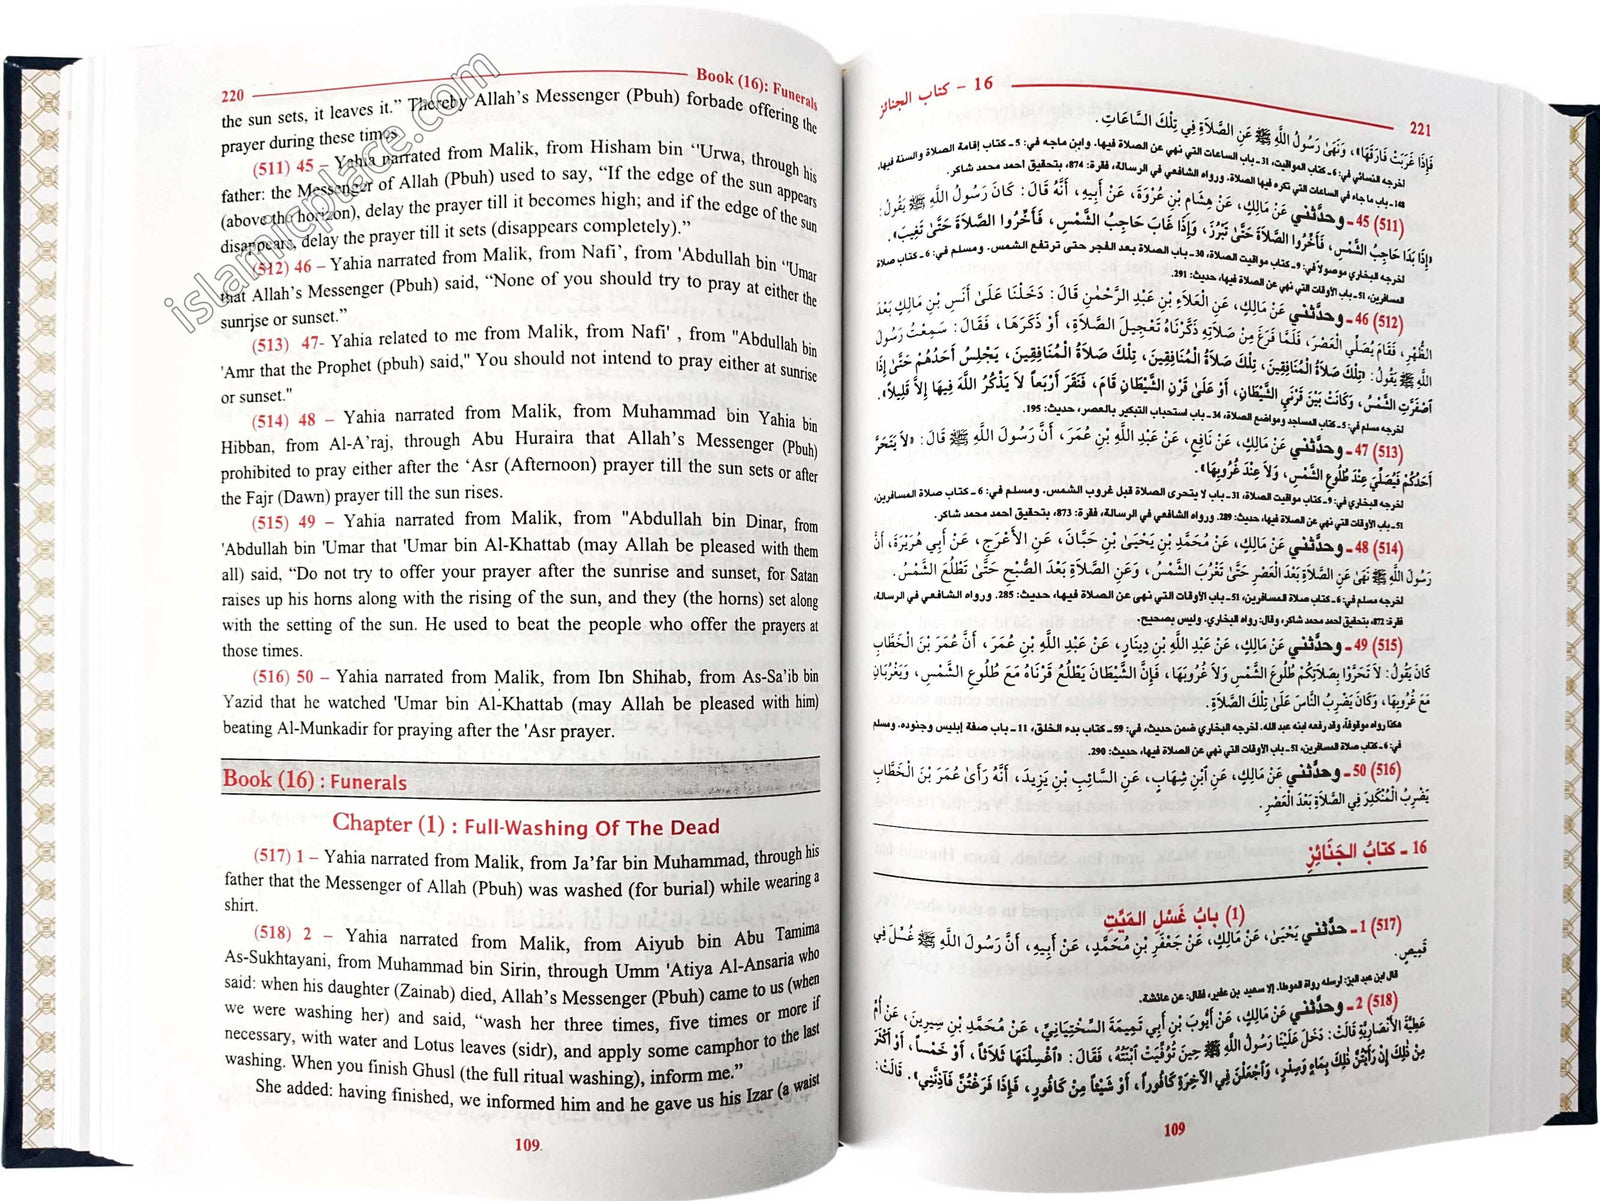 220
Book (16): Funerals
the sun sets, it leaves it.” Thereby Allah’s Messenger (Pbuh) forbade offering the
prayer during these times
(511) 45 – Yahia narrated from Malik, from Hisham bin ‘'Urwa, through his
father: the Messenger of Allah (Pbuh) used to say, “If the edge of the sun appears
(above the horizon), delay the prayer till it becomes high; and if the edge of the sun
disappears, delay the prayer till it sets (disappears completely).”
(512) 46 – Yahia narrated from Malik, from Nafi’, from 'Abdullah bin ‘'Umar
that Allah’s Messenger (Pbuh) said, “None of you should try to pray at either the
sunrise or sunset.”
(513) 47- Yahia related to me from Malik, from Nafi' , from "Abdullah bin
'Amr that the Prophet (pbuh) said," You should not intend to pray either at sunrise
or sunset."
(514) 48 – Yahia narrated from Malik, from Muhammad bin Yahia bin
Hibban, from Al-A’raj, through Abu Huraira that Allah’s Messenger (Pbuh)
prohibited to pray either after the ‘Asr (Afternoon) prayer till the sun sets or after
the Fajr (Dawn) prayer till the sun rises.
(515) 49 – Yahia narrated from Malik, from "Abdullah bin Dinar, from
'Abdullah bin 'Umar that 'Umar bin Al-Khattab (may Allah be pleased with them
all) said, “Do not try to offer your prayer after the sunrise and sunset, for Satan
raises up his horns along with the rising of the sun, and they (the horns) set along
with the setting of the sun. He used to beat the people who offer the prayers at
those times.
(516) 50 – Yahia narrated from Malik, from Ibn Shihab, from As-Sa’ib bin
Yazid that he watched 'Umar bin Al-Khattab (may Allah be pleased with him)
beating Al-Munkadir for praying after the 'Asr prayer.
Book (16) : Funerals
Chapter (1) : Full-Washing Of The Dead
(517) 1 – Yahia narrated from Malik, from Ja’far bin Muhammad, through his
father that the Messenger of Allah (Pbuh) was washed (for burial) while wearing a
shirt.
(518) 2 – Yahia narrated from Malik, from Aiyub bin Abu Tamima
As-Sukhtayani, from Muhammad bin Sirin, through Umm 'Atiya Al-Ansaria who
said: when his daughter (Zainab) died, Allah’s Messenger (Pbuh) came to us (when
we were washing her) and said, “wash her three times, five times or more if
necessary, with water and Lotus leaves (sidr), and apply some camphor to the last
washing. When you finish Ghusl (the full ritual washing), inform me.”
She added: having finished, we informed him and he gave us his Izar (a waist
109
islamicplace.com
16 - كتاب الجنائز
221
فَإِذَا غَرَبَتْ فَارَقَهَا»، وَنَهَىٰ رَسُولُ اللَّهِ ﷺ عَنِ الصَّلاَةِ فِي تِلْكَ السَّاعَاتِ.
اخرجه النسائي في: 6 ـ كتاب المواقيت، 31 ـ باب الساعات التي نهي عن الصلاة فيها. وابن ماجه في: 5 ـ كتاب إقامة الصلاة والسنة فيها،
148 ـ باب ما جاء في الساعات التي تكره فيها الصلاة. ورواه الشافعي في الرسالة، فقرة: 874، بتحقيق أحمد محمد شاكر.
(511) 45 ـ وحدَّثني عَنْ مَالِكٍ، عَنْ هِشَامِ بْنِ عُرْوَةَ، عَنْ أَبِيهِ، أَنَّهُ قَالَ: كَانَ رَسُولُ اللَّهِ ﷺ يَقُولُ:
«إِذَا بَدَا حَاجِبُ الشَّمْسِ، فَأَخِّرُوا الصَّلاَةَ حَتَّىٰ تَبْرُزَ، وَإِذَا غَابَ حَاجِبُ الشَّمْسِ، فَأَخِّرُوا الصَّلاَةَ حَتَّىٰ تَغِيبَ».
اخرجه البخاري موصولاً في: 9 ـ كتاب مواقيت الصلاة، 30 ـ باب الصلاة بعد الفجر حتى ترتفع الشمس. ومسلم في: 6 ـ كتاب صلاة
المسافرين، 51 ـ باب الأوقات التي نهي عن الصلاة فيها، حديث: 291.
(512) 46 ـ وحدَّثني عَنْ مَالِكٍ، عَنِ الْعَلاَءِ بْنِ عَبْدِ الرَّحْمٰنِ قَالَ: دَخَلْنَا عَلَىٰ أَنَسِ بْنِ مَالِكٍ بَعْدَ
الظُّهْرِ، فَقَامَ يُصَلِّي الْعَصْرَ، فَلَمَّا فَرَغَ مِنْ صَلاَتِهِ ذَكَرْنَاهُ تَعْجِيلَ الصَّلاَةِ، أَوْ ذَكَرَهَا، فَقَالَ: سَمِعْتُ رَسُولَ
اللَّهِ ﷺ يَقُولُ: «تِلْكَ صَلاَةُ الْمُنَافِقِينَ، تِلْكَ صَلاَةُ الْمُنَافِقِينَ، تِلْكَ صَلاَةُ الْمُنَافِقِينَ، يَجْلِسُ أَحَدُهُمْ حَتَّىٰ إِذَا
اصْفَرَّتِ الشَّمْسُ، وَكَانَتْ بَيْنَ قَرْنَيِ الشَّيْطَانِ، أَوْ عَلَىٰ قَرْنِ الشَّيْطَانِ قَامَ، فَنَقَرَ أَرْبَعاً لاَ يَذْكُرُ اللَّهَ فِيهَا إِلاَّ قَلِيلاً».
اخرجه مسلم في: 5 ـ كتاب المساجد ومواضع الصلاة، 34 ـ باب استحباب التبكير بالعصر، حديث: 195.
(513) 47 ـ وحدَّثني عَنْ مَالِكٍ، عَنْ نَافِعٍ، عَنْ عَبْدِ اللَّهِ بْنِ عُمَرَ، أَنَّ رَسُولَ اللَّهِ ﷺ قَالَ: «لاَ يَتَحَرَّ
أَحَدُكُمْ فَيُصَلِّيَ عِنْدَ طُلُوعِ الشَّمْسِ، وَلاَ عِنْدَ غُرُوبِهَا».
اخرجه البخاري في: 9 ـ كتاب مواقيت الصلاة، 31 ـ باب لا يتحرى الصلاة قبل غروب الشمس. ومسلم في: 6 ـ كتاب صلاة المسافرين،
51 ـ باب الأوقات التي نهي عن الصلاة فيها، حديث: 289. ورواه الشافعي في الرسالة، فقرة: 873، بتحقيق أحمد محمد شاكر.
(514) 48 ـ وحدَّثني عَنْ مَالِكٍ، عَنْ مُحَمَّدِ بْنِ يَحْيَىٰ بْنِ حَبَّانَ، عَنِ الأَعْرَجِ، عَنْ أَبِي هُرَيْرَةَ، أَنَّ
رَسُولَ اللَّهِ ﷺ نَهَىٰ عَنِ الصَّلاَةِ بَعْدَ الْعَصْرِ حَتَّىٰ تَغْرُبَ الشَّمْسُ، وَعَنِ الصَّلاَةِ بَعْدَ الصُّبْحِ حَتَّىٰ تَطْلُعَ الشَّمْسُ.
اخرجه مسلم في: 6 ـ كتاب صلاة المسافرين، 51 ـ باب الأوقات التي نهى عن الصلاة فيها، حديث: 285. ورواه الشافعي في الرسالة،
فقرة: 872، بتحقيق أحمد محمد شاكر، وقال: رواه البخاري. وليس بصحيح.
(515) 49 ـ وحدَّثني عَنْ مَالِكٍ، عَنْ عَبْدِ اللَّهِ بْنِ دِينَارٍ، عَنْ عَبْدِ اللَّهِ بْنِ عُمَرَ، أَنَّ عُمَرَ بْنَ الْخَطَّابِ
كَانَ يَقُولُ: لاَ تَحَرَّوْا بِصَلاَتِكُمْ طُلُوعَ الشَّمْسِ وَلاَ غُرُوبَهَا، فَإِنَّ الشَّيْطَانَ يَطْلُعُ قَرْنَاهُ مَعَ طُلُوعِ الشَّمْسِ، وَيَغْرُبَانِ
مَعَ غُرُوبِهَا، وَكَانَ يَضْرِبُ النَّاسَ عَلَىٰ تِلْكَ الصَّلاَةِ.
هكذا رواه موقوفاً، وقد رفعه ابنه عبد الله. اخرجه البخاري ضمن حديث، في: 59 ـ كتاب بدء الخلق، 11 ـ باب صفة إبليس وجنوده. ومسلم
في: 6 ـ كتاب صلاة المسافرين، 51 ـ باب الأوقات التي نهي عن الصلاة فيها، حديث: 290.
(516) 50 ـ وحدَّثني عَنْ مَالِكٍ، عَنِ ابْنِ شِهَابٍ، عَنِ السَّائِبِ بْنِ يَزِيدَ، أَنَّهُ رَأَىٰ عُمَرَ بْنَ الْخَطَّابِ
يَضْرِبُ الْمُنْكَدِرَ فِي الصَّلاَةِ بَعْدَ الْعَصْرِ.
16 ـ كتابُ الجَنَائِزِ
(1) بابُ غَسْلِ المَيِّتِ
(517) 1 ـ حدَّثني يَحْيَىٰ، عَنْ مَالِكٍ، عَنْ جَعْفَرِ بْنِ مُحَمَّدٍ، عَنْ أَبِيهِ، أَنَّ رَسُولَ اللَّهِ ﷺ غُسِّلَ فِي
قَمِيصٍ.
قال ابن عبد البر: ارسله رواة الموطا. إلا سعيد بن عفير، فقال: عن عائشة.
(518) 2 ـ وحدَّثني عَنْ مَالِكٍ، عَنْ أَيُّوبَ بْنِ أَبِي تَمِيمَةَ السَّخْتِيَانِيِّ، عَنْ مُحَمَّدِ بْنِ سِيرِينَ، عَنْ أُمِّ
عَطِيَّةَ الأَنْصَارِيَّةِ قَالَتْ: دَخَلَ عَلَيْنَا رَسُولُ اللَّهِ ﷺ حِينَ تُوُفِّيَتِ ابْنَتُهُ، فَقَالَ: «اغْسِلْنَهَا ثَلاَثاً، أَوْ خَمْساً، أَوْ أَكْثَرَ
مِنْ ذٰلِكَ إِنْ رَأَيْتُنَّ ذٰلِكَ بِمَاءٍ وَسِدْرٍ، وَاجْعَلْنَ فِي الآخِرَةِ كَافُوراً، أَوْ شَيْئاً مِنْ كَافُورٍ، فَإِذَا فَرَغْتُنَّ فَآذِنَّنِي». قَالَتْ:
109